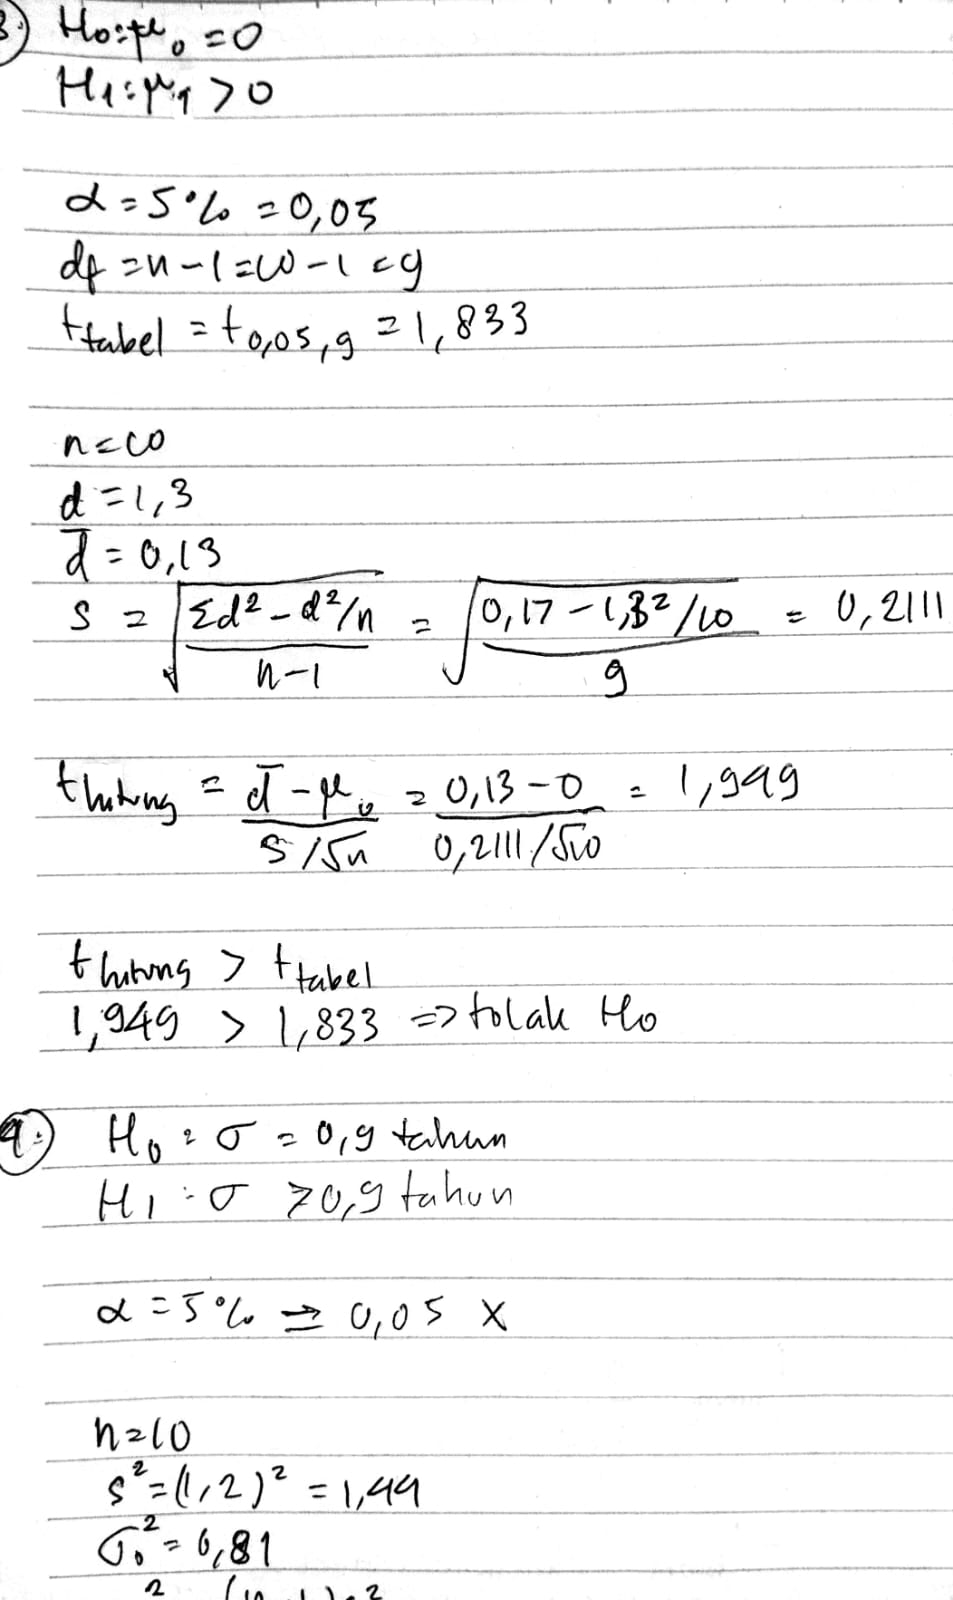 3.) H₀ : μ₀ = 0
H₁ : μ₁ > 0
α = 5% = 0,05
df = n - 1 = 10 - 1 = 9
t tabel = t 0,05, 9 = 1,833
n = 10
d = 1,3
d̄ = 0,13
S = √((Σd² - d²/n)/(n-1)) = √((0,17 - 1,3²/10)/9) = 0,2111
t hitung = (d̄ - μ₀)/(S/√n) = (0,13 - 0)/(0,2111/√10) = 1,949
t hitung > t tabel
1,949 > 1,833 => tolak H₀
4.) H₀ : σ = 0,9 tahun
H₁ : σ > 0,9 tahun
α = 5% = 0,05 X
n = 10
s² = (1,2)² = 1,44
σ₀² = 0,81